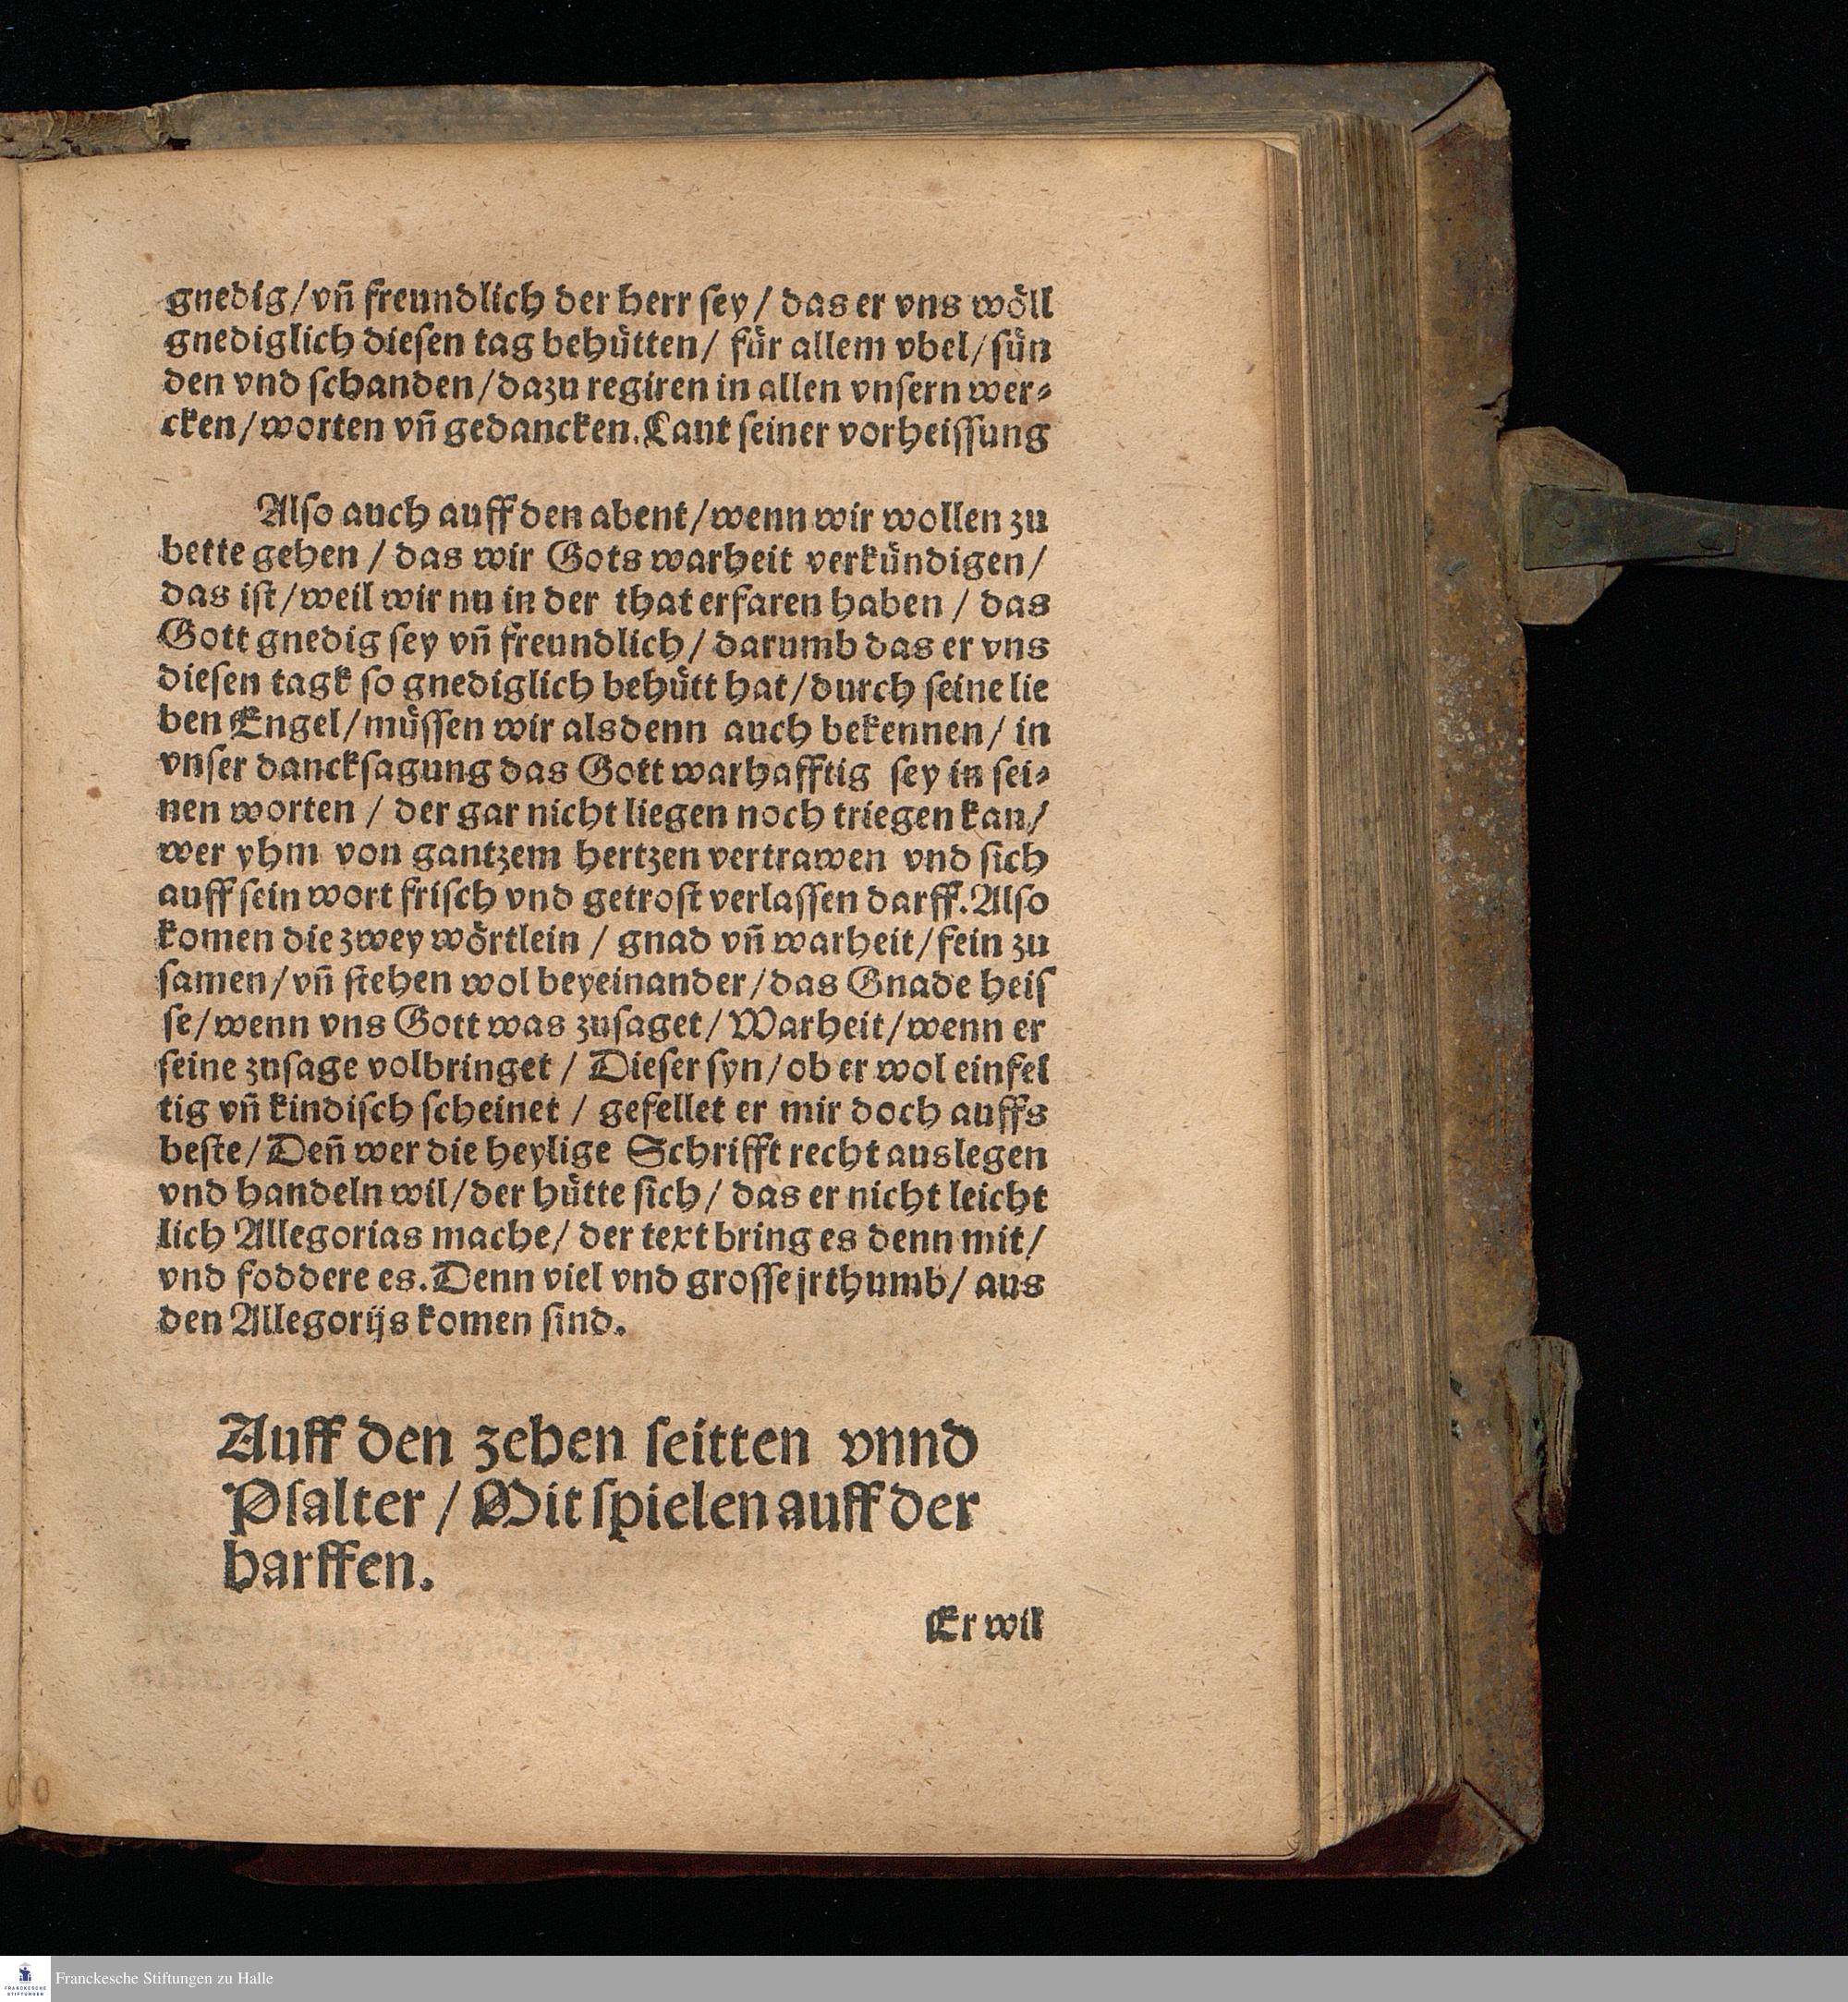 gnedig/vñ freundlich der herr ſey/ das er vns wöll
gnediglich dieſen tag behütten/ für allem vbel/ſün
den vnd ſchanden/dazu regiren in allen vnſern wer⸗
cken/worten vñ gedancken. Laut ſeiner vorheiſſung
Alſo auch auff den abent/wenn wir wollen zu
bette gehen / das wir Gots warheit verkündigen/
das iſt/weil wir nu in der that erfaren haben / das
Gott gnedig ſey vñ freundlich/ darumb das er vns
dieſen tagk ſo gnediglich behütt hat/durch ſeine lie
ben Engel/müſſen wir alsdenn auch bekennen/ in
vnſer danckſagung das Gott warhafftig ſey in ſei⸗
nen worten / der gar nicht liegen noch triegen kan/
wer yhm von gantzem hertzen vertrawen vnd ſich
auff ſein wort friſch vnd getroſt verlaſſen darff. Alſo
komen die zwey wörtlein / gnad vñ warheit/fein zu
ſamen/vñ ſtehen wol beyeinander/das Gnade heiſ
ſe/wenn vns Gott was zuſaget/Warheit/wenn er
ſeine zuſage volbringet / Dieſer ſyn/ob er wol einfel
tig vñ kindiſch ſcheinet / gefellet er mir doch auffs
beſte/Deñ wer die heylige Schrifft recht auslegen
vnd handeln wil/der hütte ſich/ das er nicht leicht
lich Allegorias mache/ der text bring es denn mit/
vnd foddere es. Denn viel vnd groſſe jrthumb/ aus
den Allegorijs komen ſind.
Auff den zehen ſeitten vnnd
Pſalter / Mit ſpielen auff der
harffen.
Er wil
FRANCKESCHE
STIFTUNGEN
Franckesche Stiftungen zu Halle